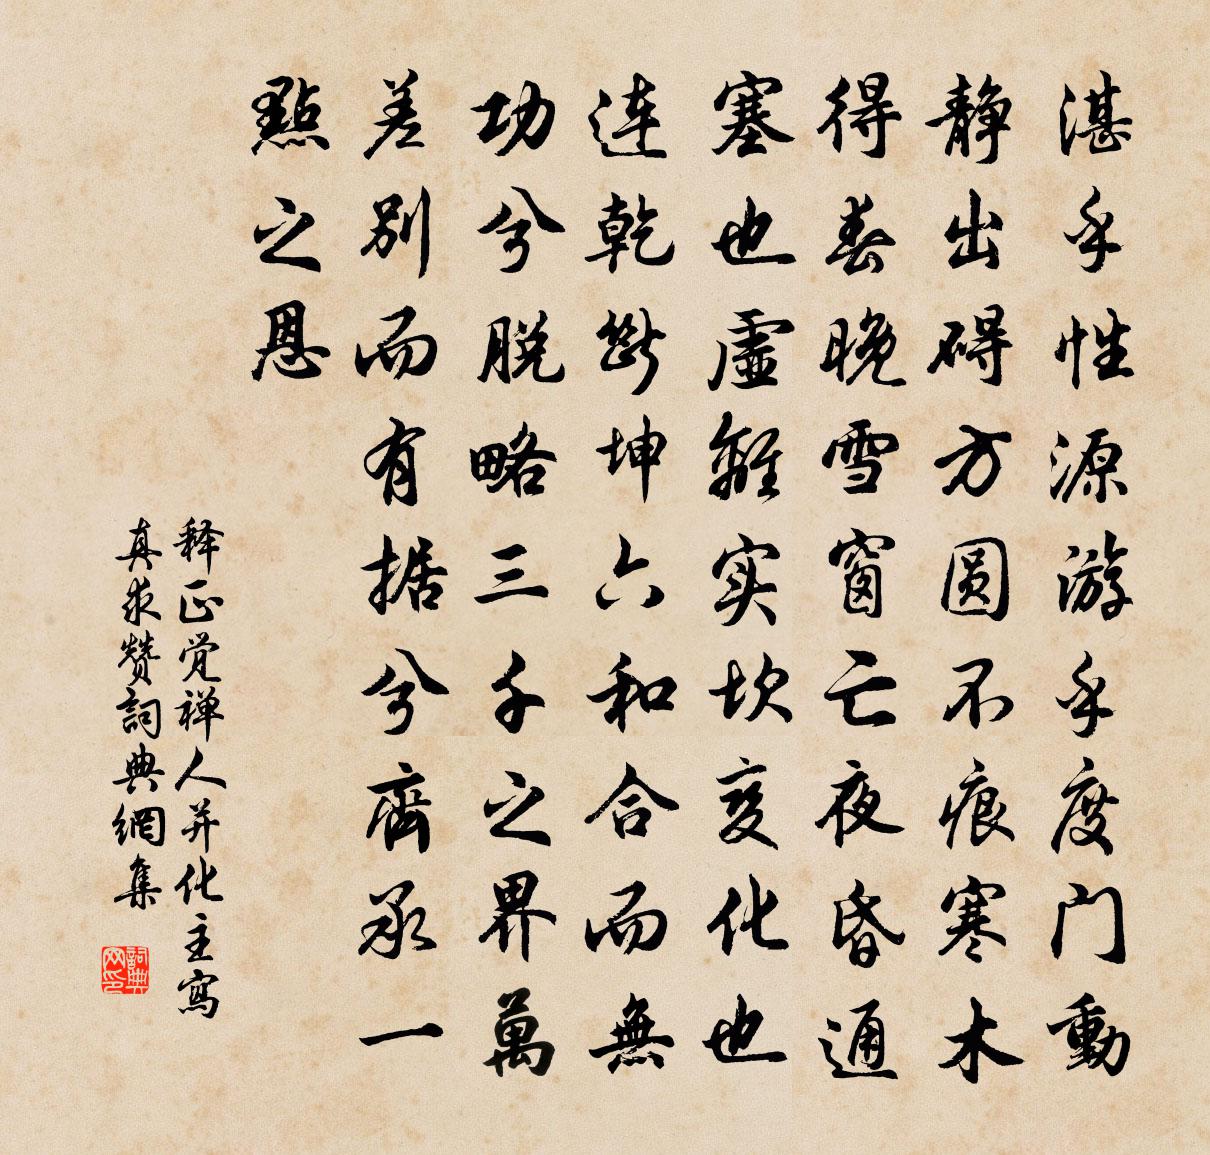 湛乎性源游乎度门動
静出碍方圆不痕寒木
得春晚雪窗亡夜昏通
塞也虚離实坎变化也
连乾斷坤六和合而無
功兮脱略三千之界萬
差别而有据兮齊承一
點之恩
释正觉禅人并化主寫
真求赞詞典網集
詞典网印